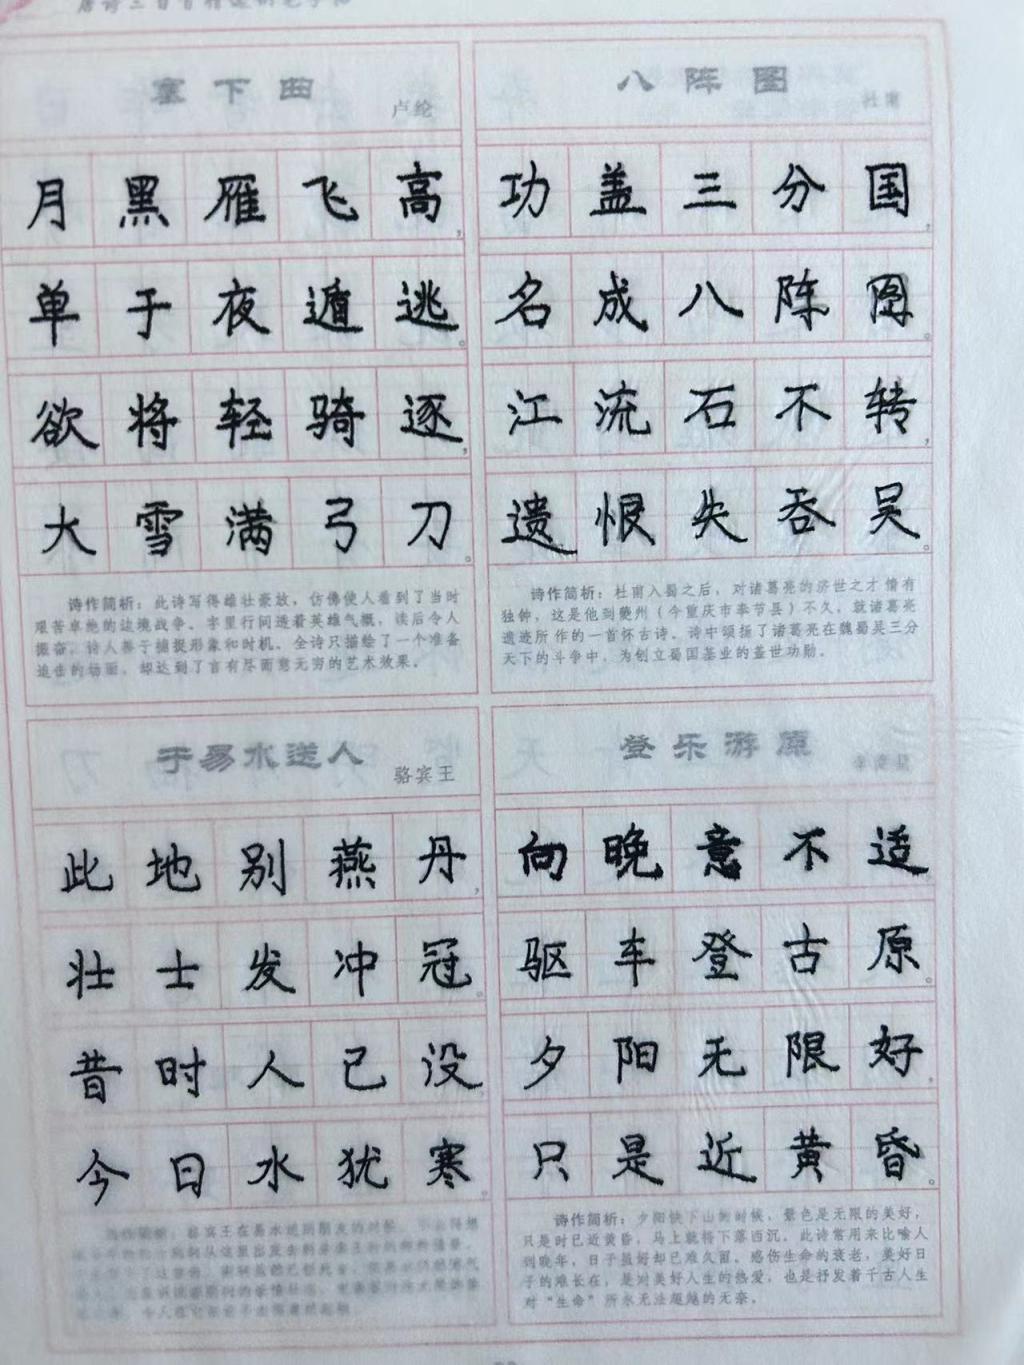 唐诗三百首精选钢笔字帖
塞下曲
卢纶
月黑雁飞高，
单于夜遁逃。
欲将轻骑逐，
大雪满弓刀。
诗作简析：此诗写得雄壮豪放，仿佛使人看到了当时
艰苦卓绝的边境战争。字里行间透着英雄气概，读后令人
振奋。诗人善于捕捉形象和时机。全诗只描绘了一个准备
追击的场面，却达到了言有尽而意无穷的艺术效果。
八阵图
杜甫
功盖三分国，
名成八阵图。
江流石不转，
遗恨失吞吴。
诗作简析：杜甫入蜀之后，对诸葛亮的济世之才情有
独钟，这是他到夔州（今重庆市奉节县）不久，就诸葛亮
遗迹所作的一首怀古诗。诗中颂扬了诸葛亮在魏蜀吴三分
天下的斗争中，为创立蜀国基业的盖世功勋。
于易水送人
骆宾王
此地别燕丹，
壮士发冲冠。
昔时人已没，
今日水犹寒。
诗作简析：骆宾王在易水送别朋友的时候，
登乐游原
李商隐
向晚意不适，
驱车登古原。
夕阳无限好，
只是近黄昏。
诗作简析：夕阳快下山的时候，景色是无限的美好，
只是时已近黄昏，马上就将下落西沉。此诗常用来比喻人
到晚年，日子虽好却已难久留。感伤生命的衰老，美好日
子的难长在，是对美好人生的热爱，也是抒发着千古人生
对“生命”所永无法超越的无奈。